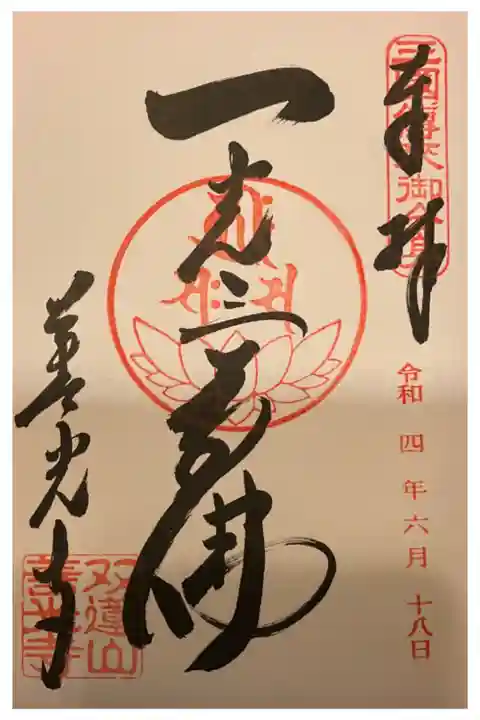 奉拝
三国傳来御分身
令和四年六月十八日
一光三尊佛
善光寺
双蓮山
善光寺